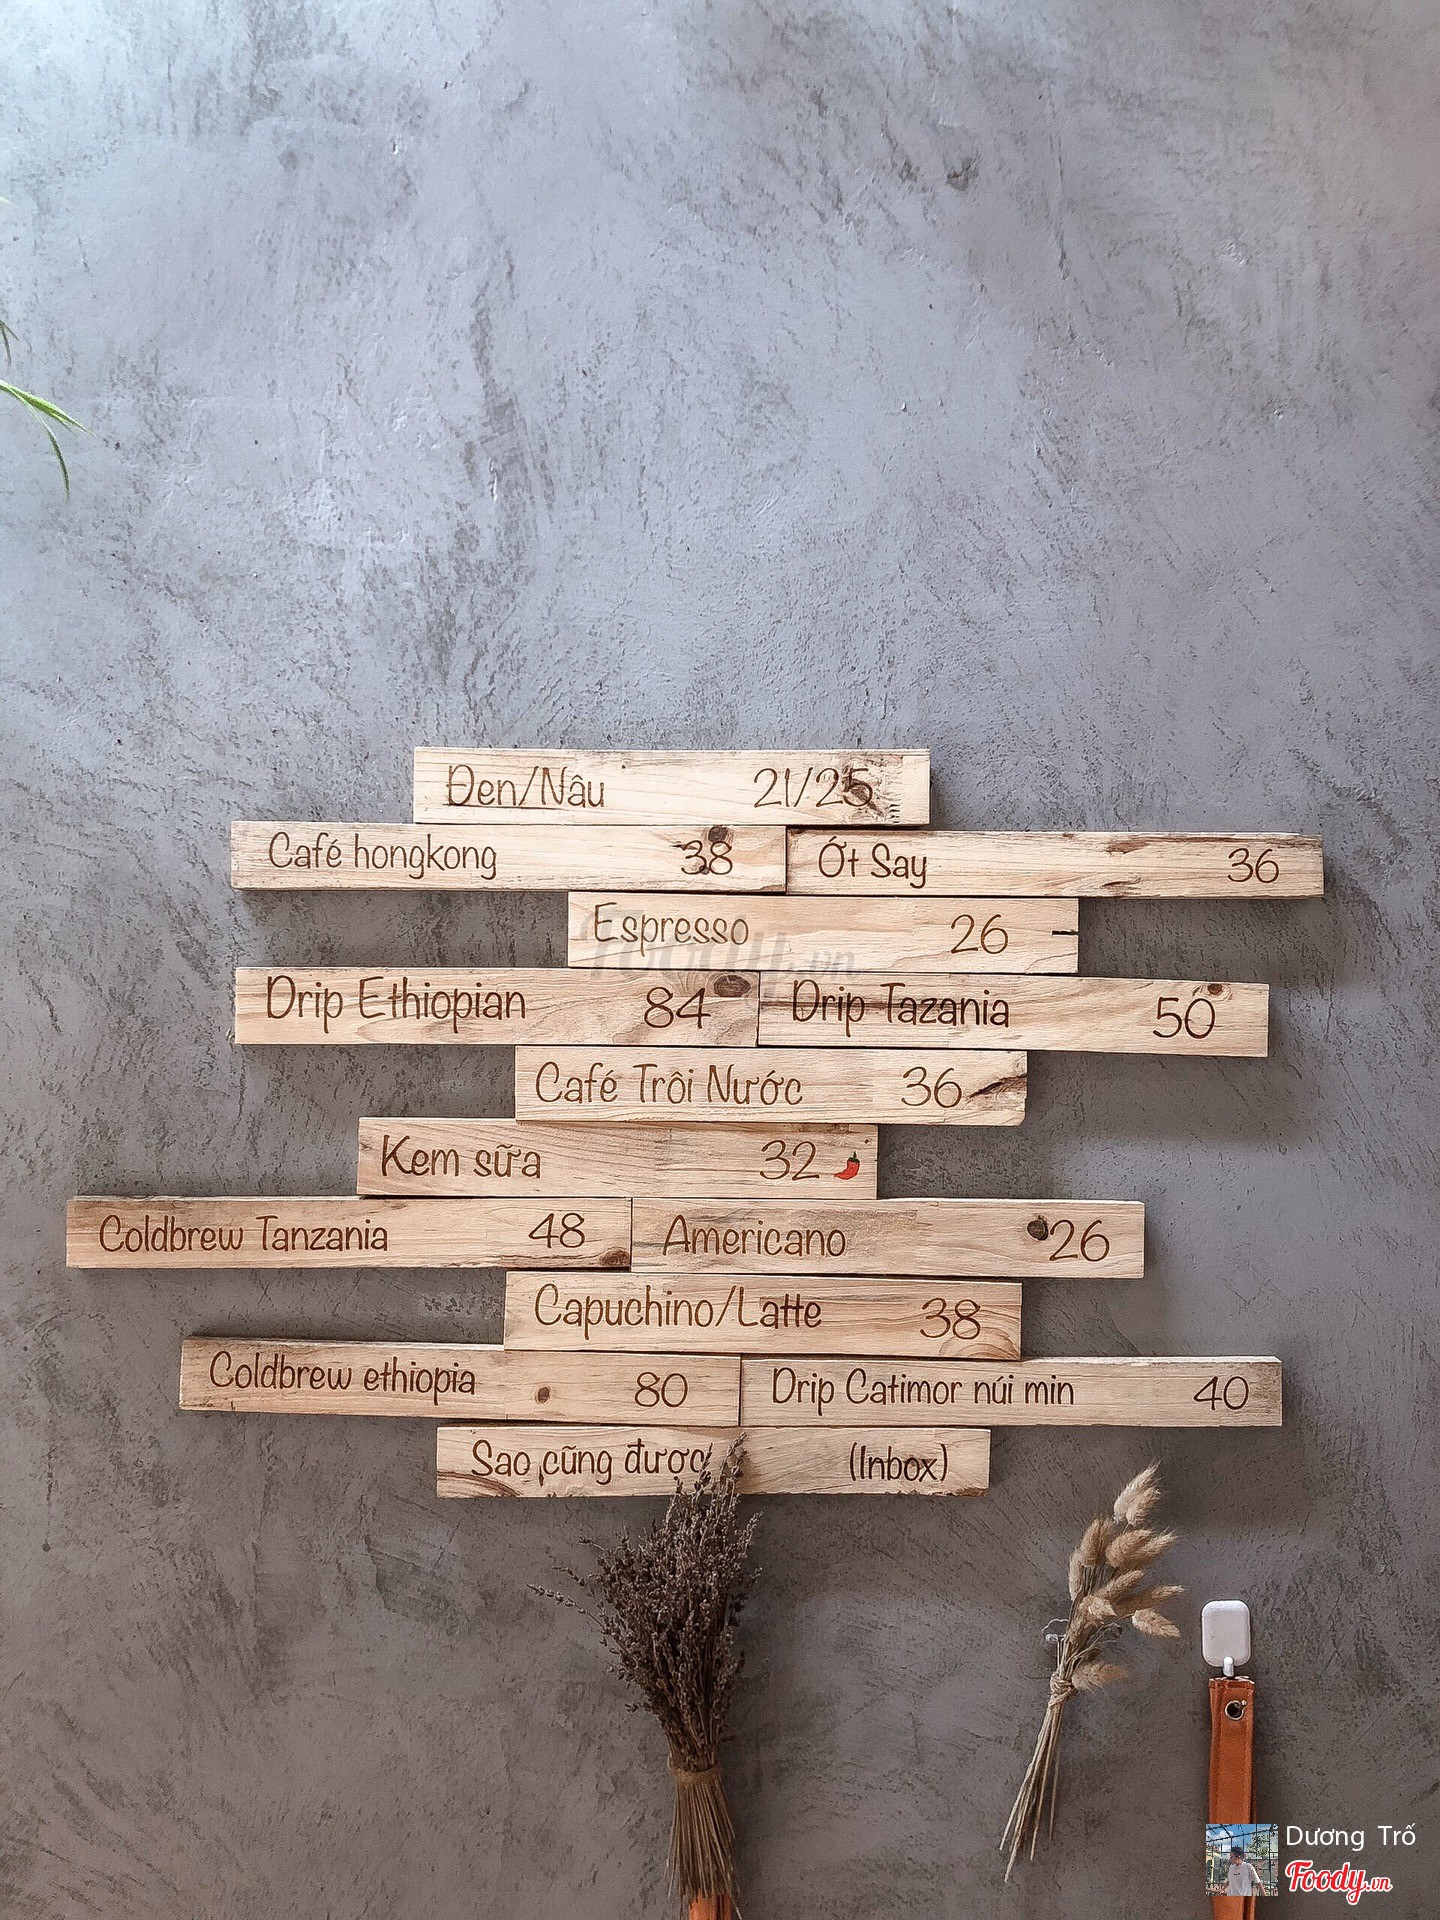 Đen/Nâu 21/25
Café hongkong 38
Ớt Say 36
Espresso 26
Foody.vn
Drip Ethiopian 84
Drip Tazania 50
Café Trôi Nước 36
Kem sữa 32
Coldbrew Tanzania 48
Americano 26
Capuchino/Latte 38
Coldbrew ethiopia 80
Drip Catimor núi min 40
Sao cũng được (Inbox)
Dương Trố
Foody.vn